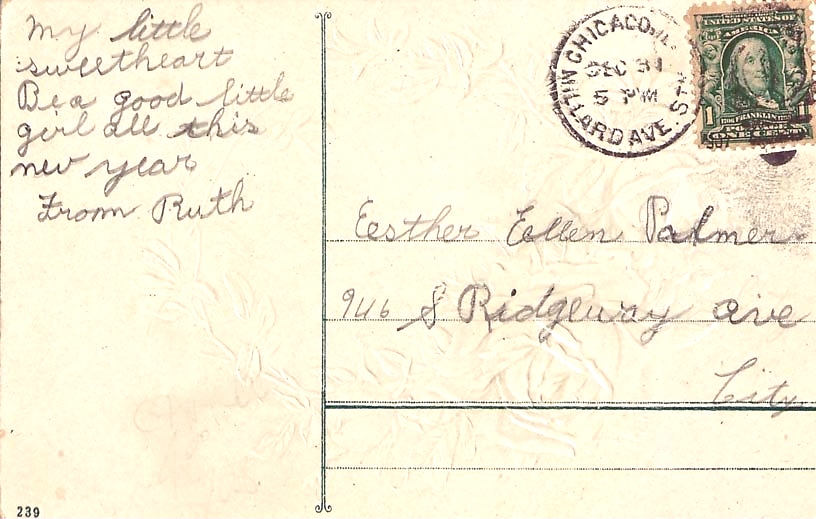 My little
sweetheart
Be a good little
girl all this
new year
From Ruth
CHICAGO, ILL.
DEC 31
5 PM
MILLARD AVE. STA.
UNITED STATES OF
AMERICA
FRANKLIN
POSTAGE
1 ONE CENT 1
Eesther Eellen Palmer
946 S Ridgeway ave
City
239